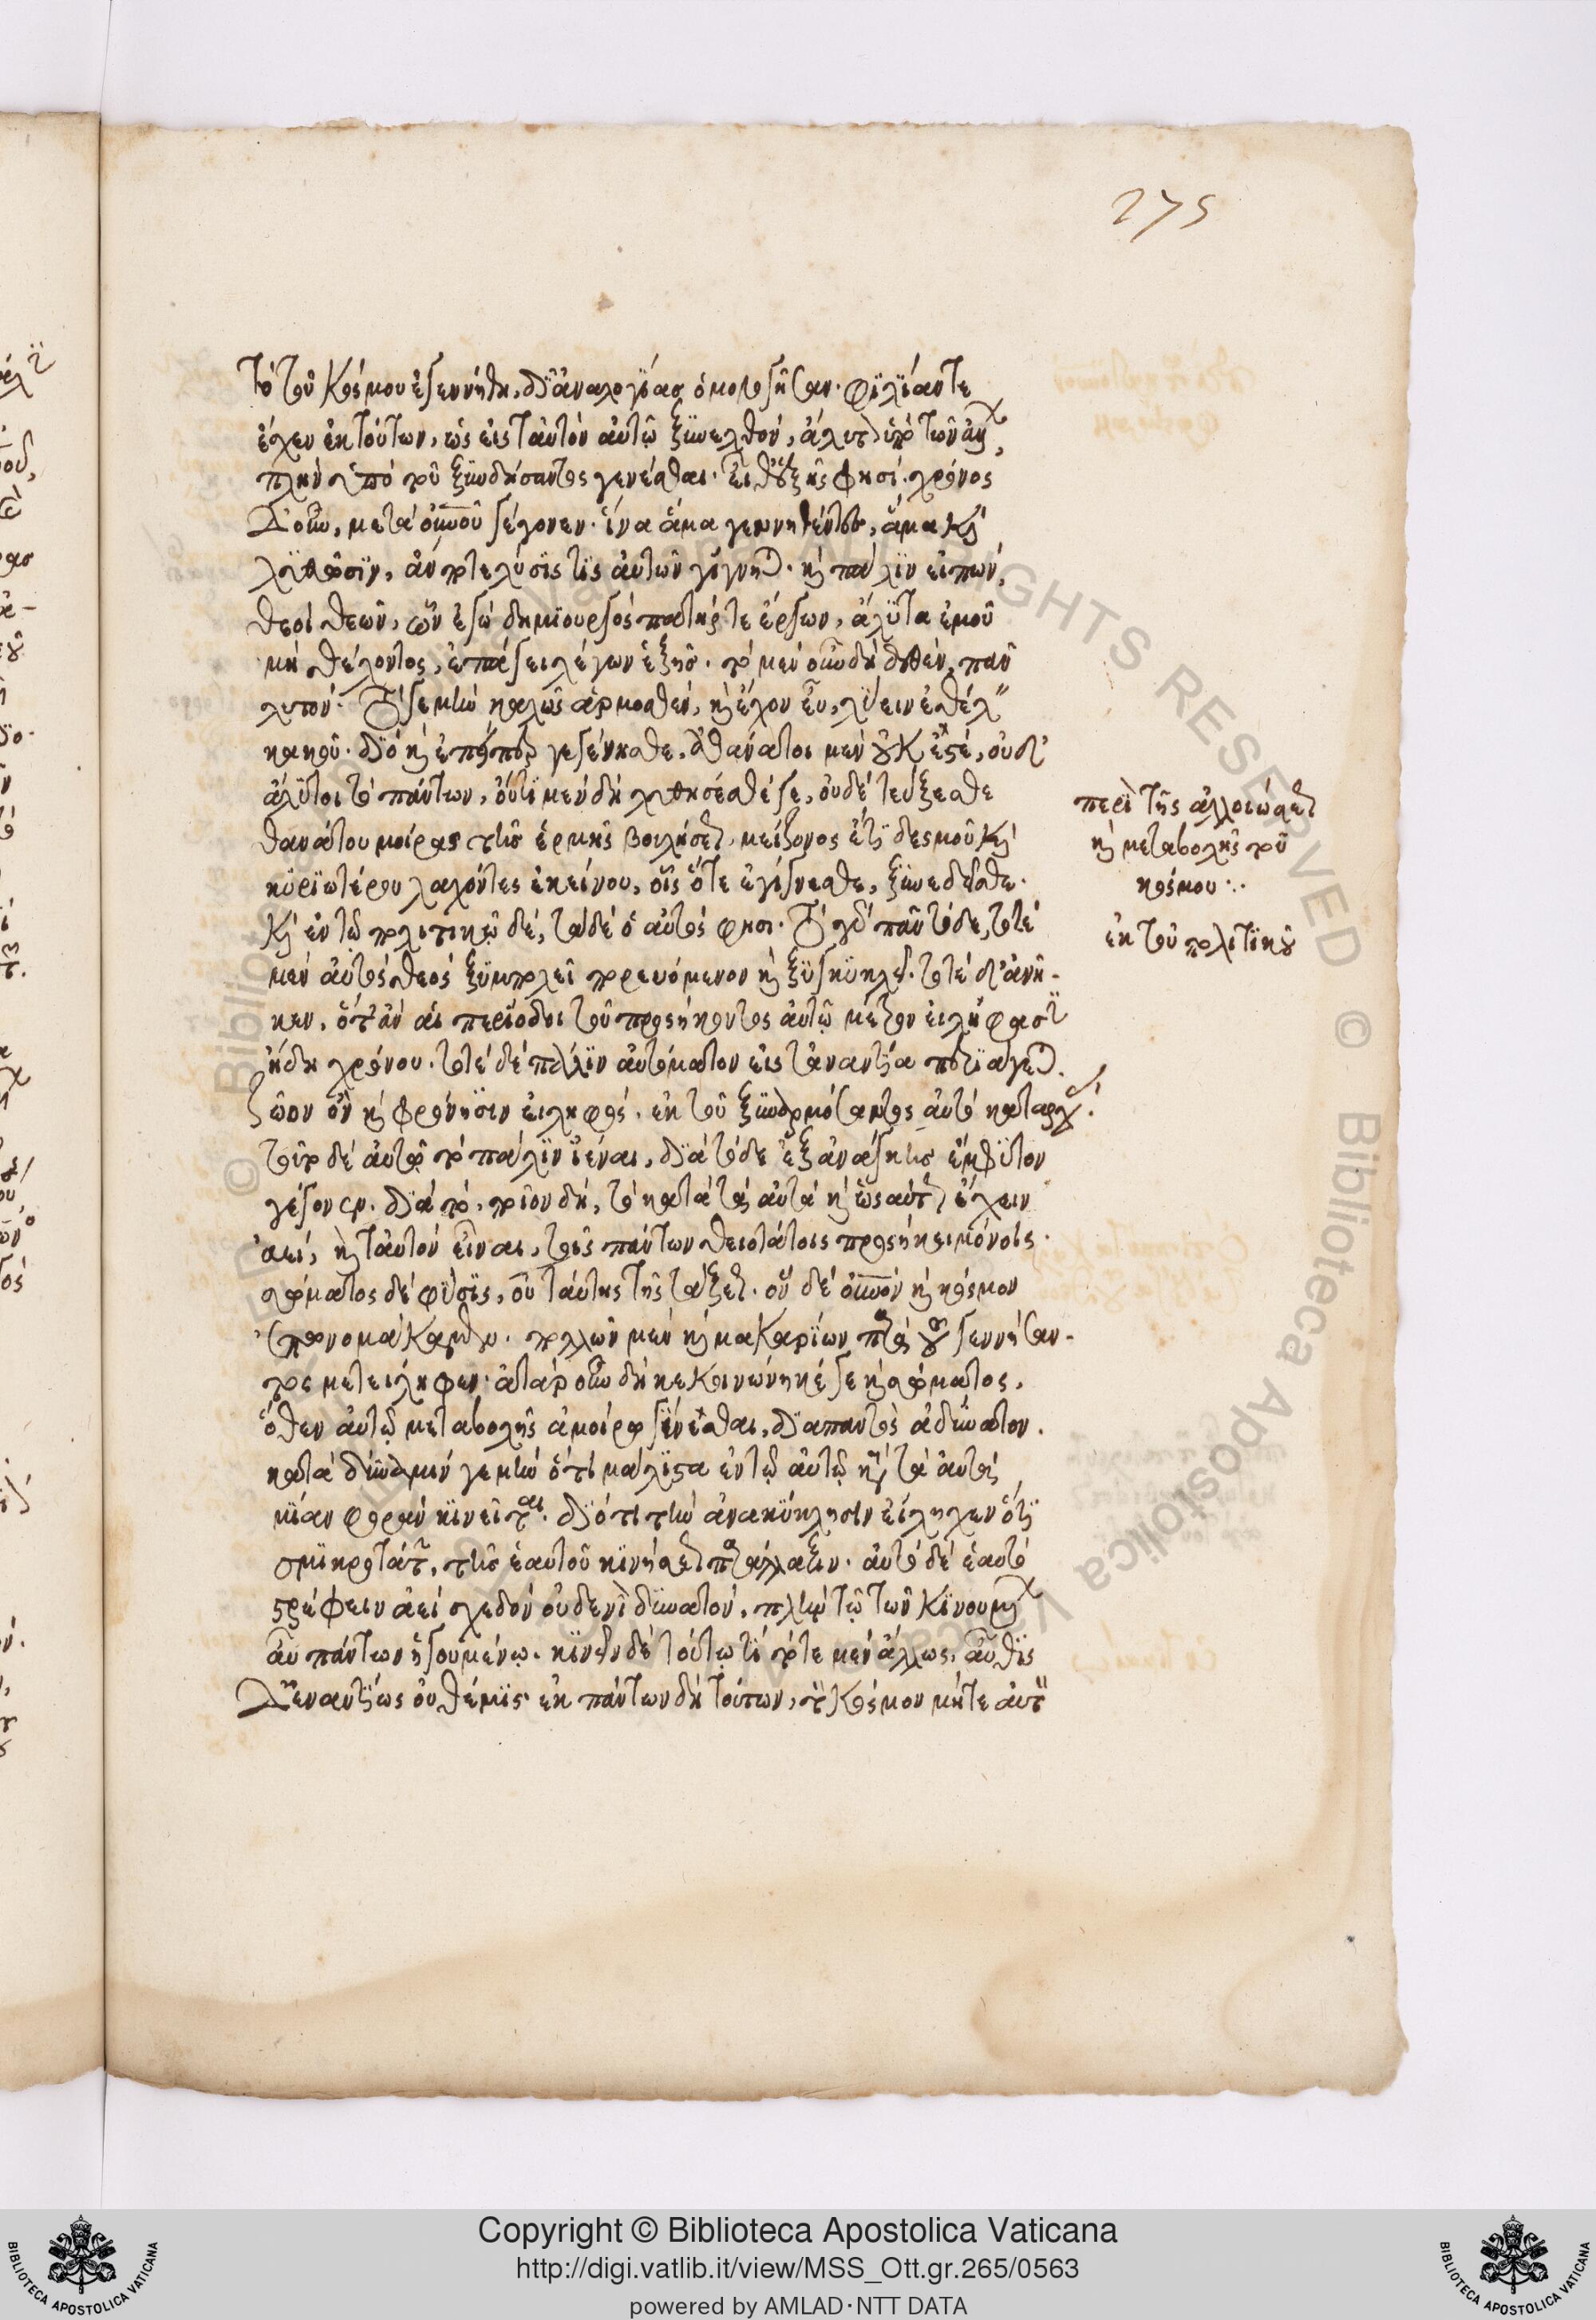 275
τὸ τοῦ κόσμου ἐγεννήθη, δι' ἀναλογίας ὁμολογῆσαν. φιλίαν τε
ἔχεν ἐκ τούτων, ὡς εἰς ταὐτὸν αὑτῷ ξυνελθόν, ἄλυτον ὑπό των ἄλλων,
πλὴν ὑπὸ τοῦ ξυνδήσαντος γενέσθαι. εἶθ' ἑξῆς φησί. χρόνος
δ' οὖν, μετ' οὐρανοῦ γέγονεν. ἵνα ἅμα γεννηθέντες, ἅμα καὶ
λυθῶσιν, ἄν ποτε λύσις τις αὐτῶν γίγνηται. καὶ πάλιν εἰπών,
θεοὶ θεῶν, ὧν ἐγὼ δημιουργὸς πατήρ τε ἔργων, ἄλυτα ἐμοῦ
μὴ θέλοντος, ἐπάγει λέγων ἑξῆς. τὸ μὲν οὖν δὴ δεθέν, πᾶν
λυτόν. τό γε μὴν καλῶς ἁρμοσθέν, καὶ ἔχον εὖ, λύειν ἐθέλειν
κακοῦ. διὸ καὶ ἐπείπερ γεγένησθε, ἀθάνατοι μὲν οὐκ ἐστέ, οὐδ'
ἄλυτοι τὸ πάμπαν, οὔτι μὲν δὴ λυθήσεσθέ γε, οὐδὲ τεύξεσθε
θανάτου μοίρας τῆς ἐμῆς βουλήσεως, μείζονος ἔτι δεσμοῦ καὶ
κυριωτέρου λαχόντες ἐκείνου, οἷς ὅτε ἐγίγνεσθε, ξυνεδεῖσθε.
καὶ ἐν τῷ πολιτικῷ δέ, τάδε ὁ αὐτός φησι. τὸ γὰρ πᾶν τόδε, τοτὲ
μὲν αὐτὸς θεὸς ξυμποδηγεῖ πορευόμενον καὶ ξυγκυκλεῖ. τοτὲ δ' ἀνῆ-
κεν, ὅταν αἱ περίοδοι τοῦ προσήκοντος αὐτῷ μέτρον εἰλήφωσιν
ἤδη χρόνου. τοτὲ δὲ πάλιν αὐτόματον εἰς τἀναντία περιάγεται.
ζῶον ὂν καὶ φρόνησιν εἰληφός. ἐκ τοῦ ξυναρμόσαντος αὐτὸ κατ' ἀρχάς.
τοῦτο δὲ αὐτῷ τὸ πάλιν ἰέναι, διὰ τόδε ἐξ ἀνάγκης ἔμφυτον
γέγονεν. διὰ τὸ ποῖον δή, τὸ κατὰ τὰ αὐτὰ καὶ ὡσαύτως ἔχειν
ἀεί, καὶ ταὐτὸν εἶναι, τοῖς πάντων θειοτάτοις προσήκει μόνοις.
σώματος δὲ φύσις, οὐ ταύτης τῆς τάξεως. ὃν δὲ οὐρανὸν καὶ κόσμον
ἐπωνομάκαμεν. πολλῶν μὲν καὶ μακαρίων παρὰ τοῦ γεννήσαν-
τος μετείληφεν. ἀτὰρ οὖν δὴ κεκοινώνηκέ γε καὶ σώματος.
ὅθεν αὐτῷ μεταβολῆς ἀμοίρῳ γίγνεσθαι, διαπαντὸς ἀδύνατον.
κατὰ δύναμιν γε μὴν ὅτι μάλιστα ἐν τῷ αὐτῷ κατὰ τὰ αὐτὰ
μίαν φορὰν κινεῖται. διότι τὴν ἀνακύκλησιν εἴληχεν ὅτι
σμικροτάτην, τῆς ἑαυτοῦ κινήσεως παράλλαξιν. αὐτὸ δὲ ἑαυτὸ
στρέφειν ἀεὶ σχεδὸν οὐδενὶ δυνατόν, πλὴν τῷ τῶν κινουμένων
αὖ πάντων ἡγουμένῳ. κινεῖν δὲ τούτῳ τί ποτε μὲν ἄλλως. αὖθις
δ' ἐναντίως οὐ θέμις. ἐκ πάντων δὴ τούτων, τὸν κόσμον μήτε αὐτὸν
περὶ τῆς ἀλλοιώσεως
καὶ μεταβολῆς τοῦ
κόσμου
ἐκ τοῦ πολιτικοῦ
Copyright © Biblioteca Apostolica Vaticana
http://digi.vatlib.it/view/MSS_Ott.gr.265/0563
powered by AMLAD·NTT DATA
BIBLIOTECA APOSTOLICA VATICANA
BIBLIOTECA APOSTOLICA VATICANA